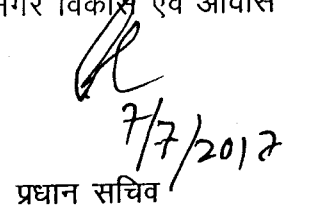 नगर विकास एवं आवास
7/7/2017
प्रधान सचिव